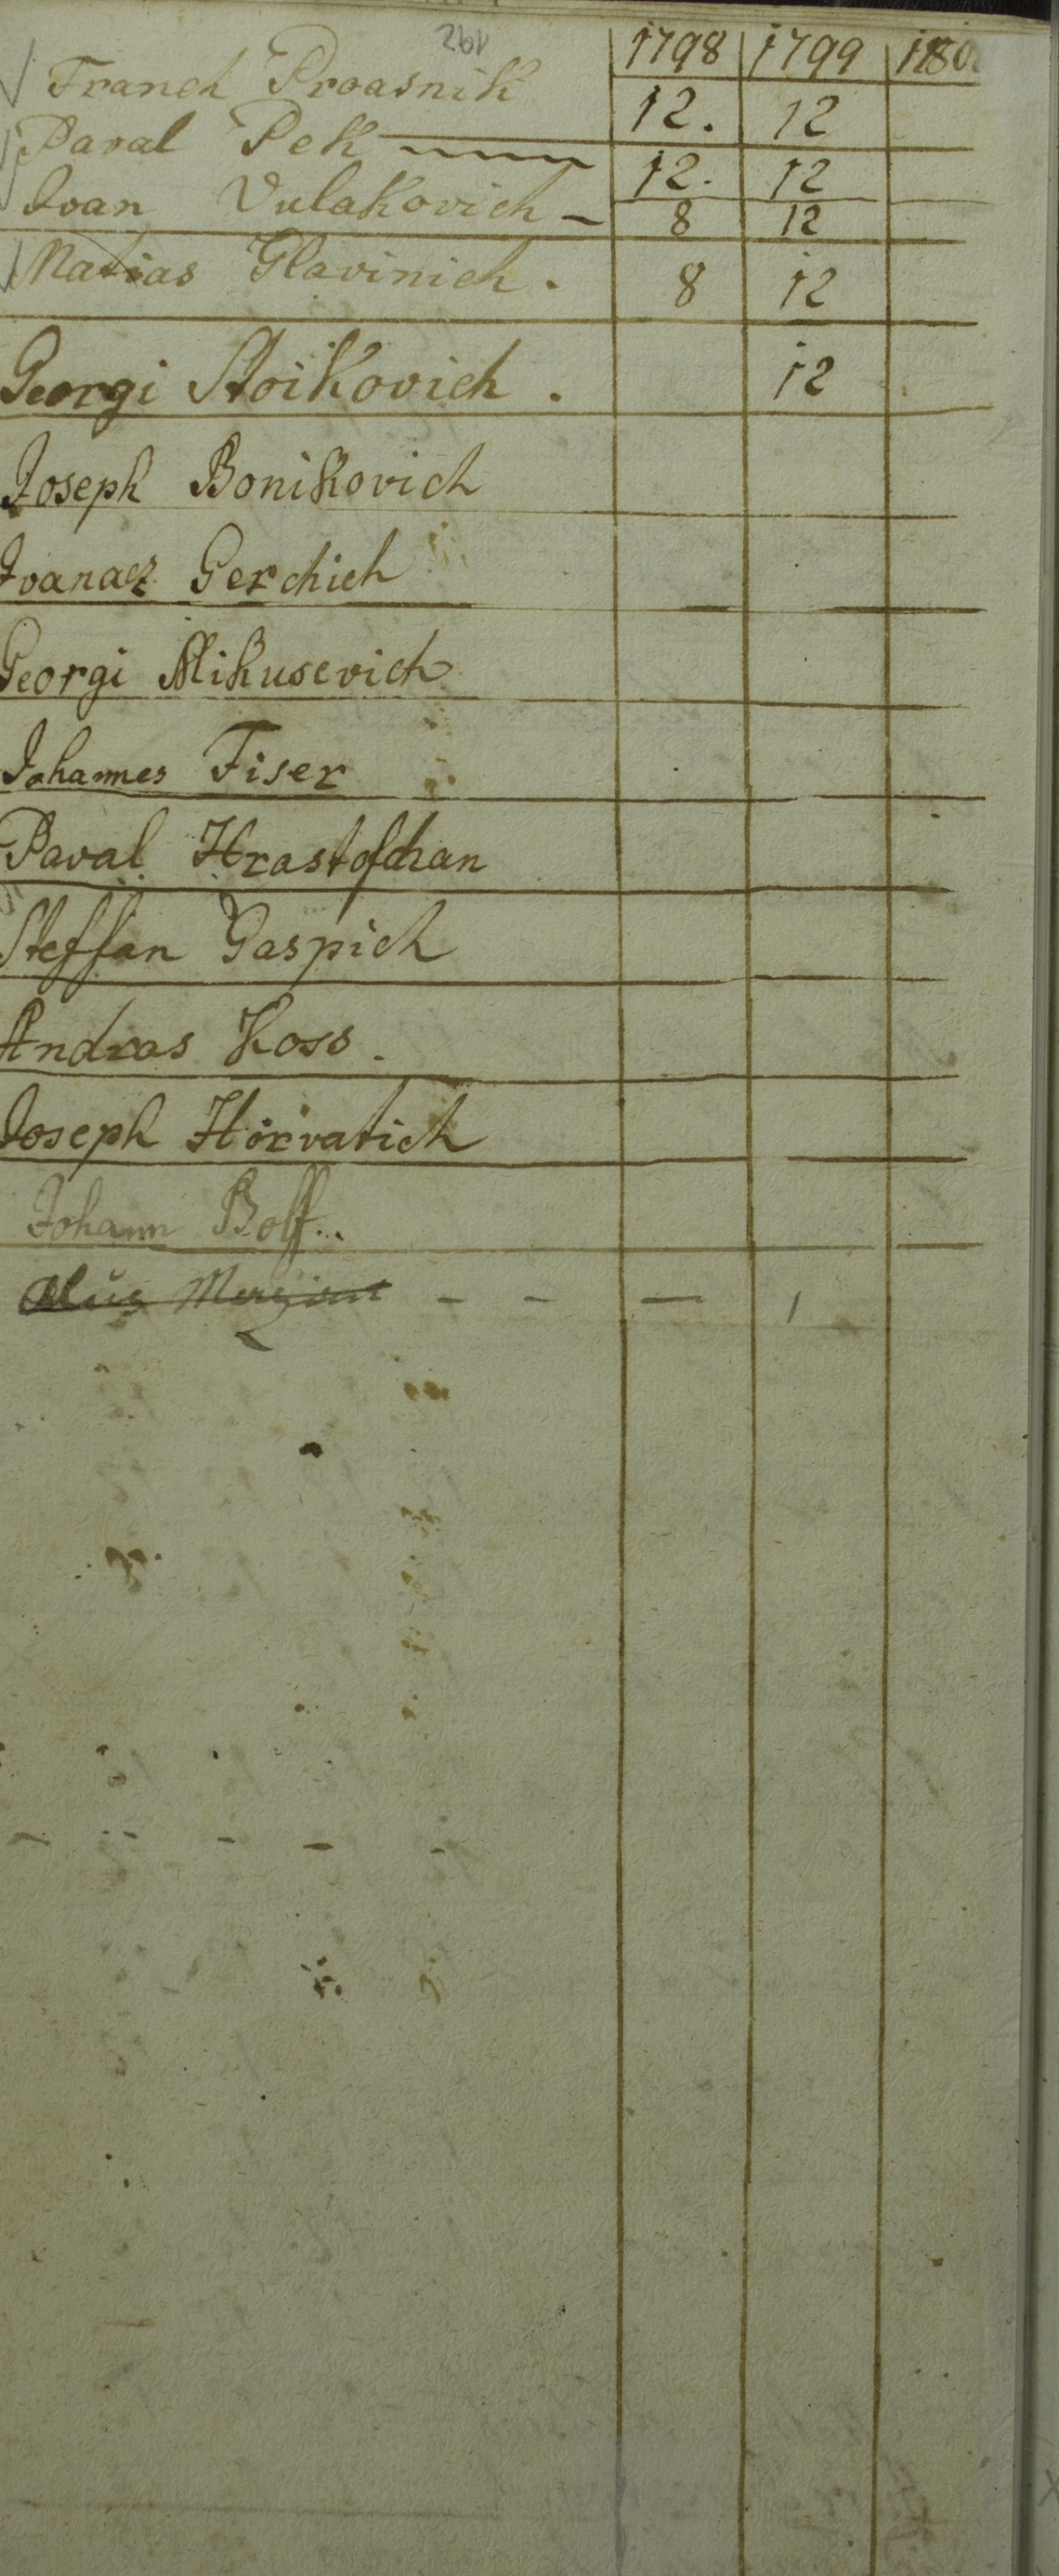 1798 1799 180
Franch Proasnik 12. 12
Paval Pek 12. 12
Ivan Vulakovich - 8 12
Matias Glavinich. 8 12
Georgi Stoikovich. 12
Joseph Bonikovich
Ivanacz Gerchich
Georgi Mikusevich
Johannes Fiser
Paval Hrastofchan
Steffan Gaspich
Andras Koss.
Joseph Horvatich
Johann Bolf..
- - — 1